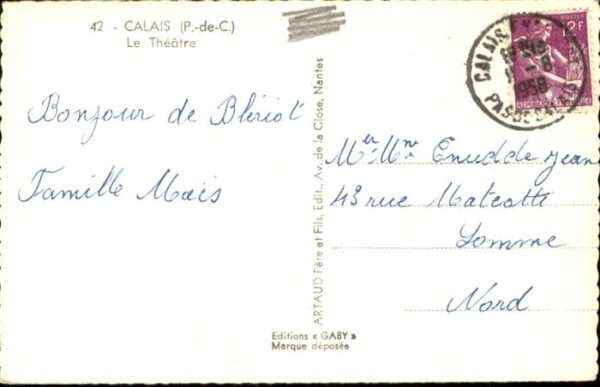 42 - CALAIS (P.-de-C.)
Le Théâtre
Bonjour de Blériot
Famille Maës
ARTAUD Père et Fils, Edit., Av. de la Close, Nantes
Editions « GABY »
Marque déposée
12F
CALAIS
1958
PAS DE CALAIS
Mr Mme Enudde Jean
43 rue Mateotti
Somme
Nord